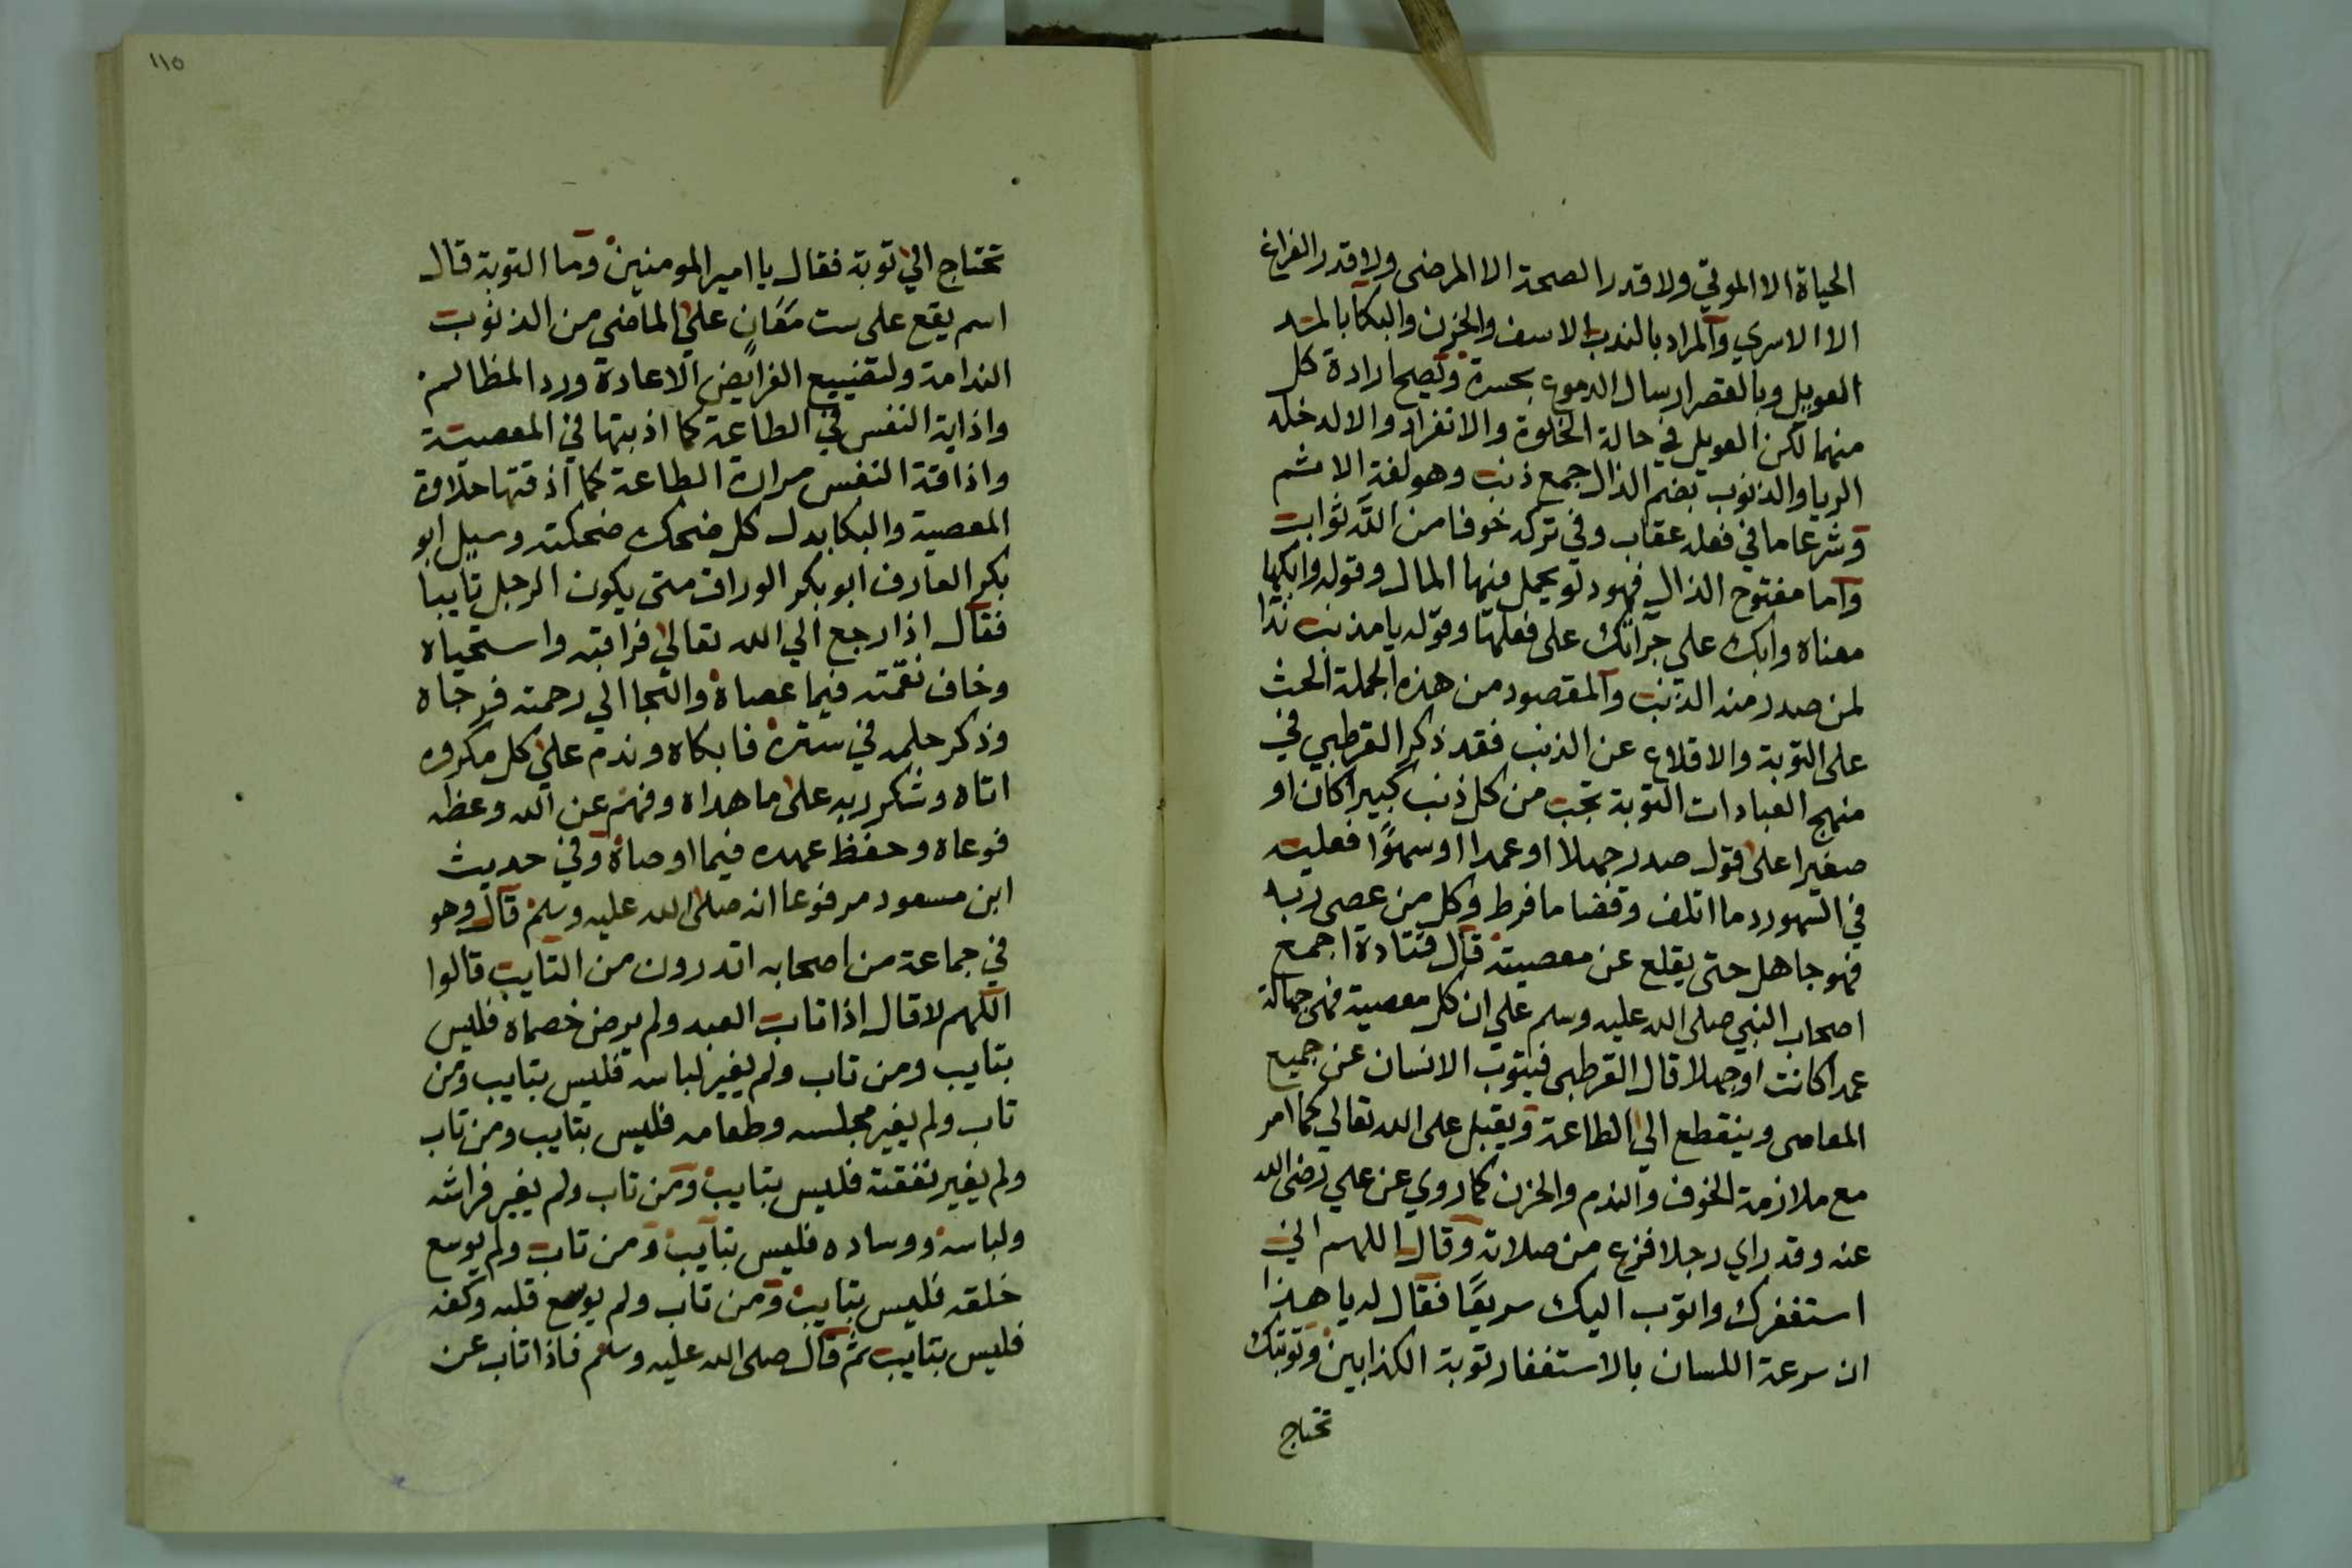 الحياة الا الموتي ولا قدر الصحة الا المرضى ولا قدر الفراغ
الا الاسري والمراد بالندب الاسف والحزن والبكا بالمد
العويل وبالقصر ارسال الدموع بحسرة وتصح ارادة كل
منهما لكن العويل في حالة الخلوة والانفراد والا لدخله
الريا والذنوب بضم الذال جمع ذنب وهو لغة الاثم
وشرعا ما في فعله عقاب وفي تركه خوفا من الله ثواب
واما مفتوح الذال فهو دلو يحمل فيها المال وقوله وابكها
معناه وابك على جرأتك على فعلها وقوله يا مذنب ندا
لمن صدر منه الذنب والمقصود من هذه الجملة الحث
على التوبة والاقلاع عن الذنب فقد ذكر القرطبي في
منهج العبادات التوبة تجب من كل ذنب كبيرا كان او
صغيرا على قول صدر جهلا او عمدا او سهوًا فعليه
في السهو رد ما اتلف وقضا ما فرط وكل من عصى ربه
فهو جاهل حتى يقلع عن معصيته قال قتادة اجمع
اصحاب النبي صلى الله عليه وسلم علي ان كل معصية فهى جهالة
عمدا كانت او جهلا قال القرطبى فيتوب الانسان عن جميع
المعاصى وينقطع الي الطاعة ويقبل على الله تعالي كما امر
مع ملازمة الخوف والندم والحزن كما روي عن علي رضى الله
عنه وقد راي رجلا فزع من صلاته وقال اللهم اني
استغفرك واتوب اليك سريعًا فقال له يا هذا
ان سرعة اللسان بالاستغفار توبة الكذابين وتوبتك
تحتاج
١١٥
تحتاج الي توبة فقال يا امير المومنين وما التوبة قال
اسم يقع على ست معان علي الماضى من الذنوب
الندامة ولتضييع الفرايض الاعادة ورد المظالم
واذابة النفس في الطاعة كما اذبتها في المعصية
واذاقة النفس مرارة الطاعة كما اذقتها حلاوة
المعصية والبكا بدل كل ضحك ضحكته وسيل ابو
بكر العارف ابو بكر الوراق متى يكون الرجل تايبا
فقال اذا رجع الي الله تعالي فراقبه واستحياه
وخاف نقمته فيما عصاه والتجا الي رحمته فرجاه
وذكر حلمه في ستره فابكاه وندم علي كل مكروه
اتاه وشكر ربه على ما هداه وفهم عن الله وعظه
فوعاه وحفظ عهده فيما اوصاه وفي حديث
ابن مسعود مرفوعا انه صلى الله عليه وسلم قال وهو
في جماعة من اصحابه اتدرون من التايب قالوا
اللهم لا قال اذا تاب العبد ولم يرض خصماه فليس
بتايب ومن تاب ولم يغير لباسه فليس بتايب ومن
تاب ولم يغير مجلسه وطعامه فليس بتايب ومن تاب
ولم يغير نفقته فليس بتايب ومن تاب ولم يغير فراشه
ولباسه ووساده فليس بتايب ومن تاب ولم يوسع
خلقه فليس بتايب ومن تاب ولم يوسع قلبه وكفه
فليس بتايب ثم قال صلى الله عليه وسلم فاذا تاب عن